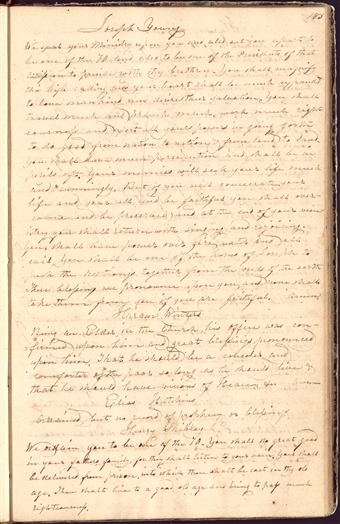 Joseph Young
be one of the 70. and also to be one of the Presidents of that
to preside with thy brethren. You shall magnify
this high calling and your heart shall be much expanded
to love mankind and desire their salvation. You shall
travel much and perform much, work much right-
eousness and exert all your powers in going forth
to do good from nation to nation & from land to land
you shall have much persecution and shall be in
perils oft. Your enemies will seek your life much
and cunningly. But if you will consecrate your
life and your all, and be faithful you shall over-
come and be preserved and at the end of your mini-
stry you shall return with singing and rejoicing.
You shall have power over fire, water and all
You shall be one of the horns of Joseph to
push the together from the ends of the earth
These blessings we pronounce upon you, and none shall
take them from you if you are faithful. Amen
Hiram Winters
Being an Elder in the Church, his office was con-
firmed upon him and great blessings pronounced
upon him, That he should be a and
comforter of the poor so long as he should live &
that he should have visions of Heaven &c
Elias Hutchins
Ordained, but no record of prophecy or blessings
Henry Shibley
We ordain you to be one of the 70. You shall do great good
in your fathers family, for they shall listen to your voice. You shall
be delivered from prison, into which thou shalt be cast in thy old
age. Thou shalt live to a good old age and bring to pass much
righteousness.